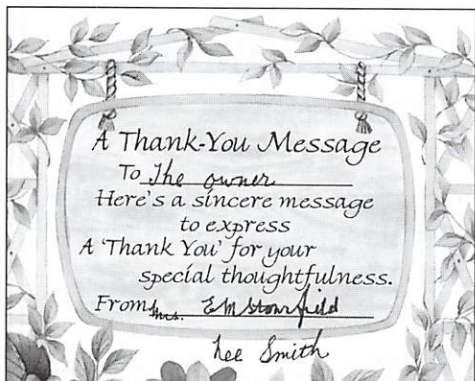 A Thank-You Message
To The owner
Here's a sincere message
to express
A 'Thank You' for your
special thoughtfulness.
From Mrs. E M Stowsfield
nee Smith